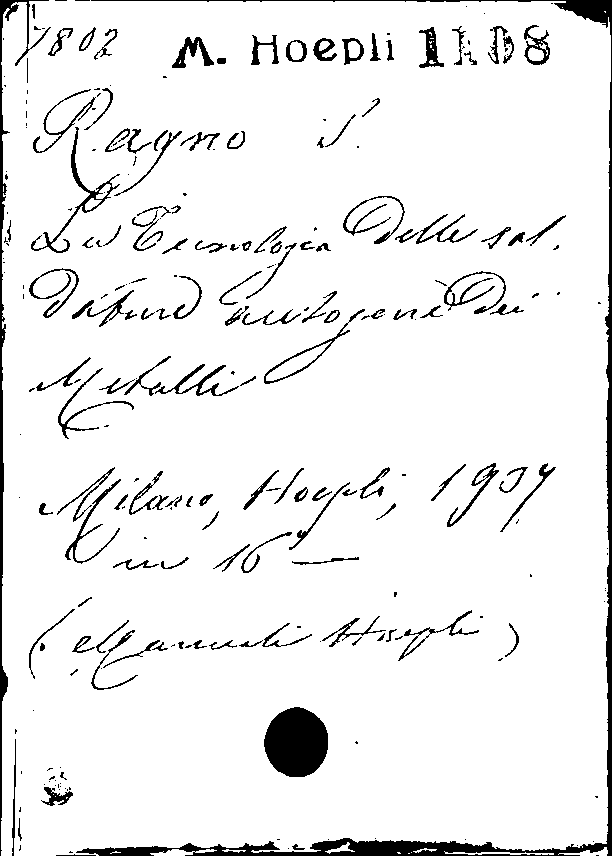 7802 M. Hoepli 1108
Ragno S.
La Tecnologia delle sal-
dature autogene dei
Metalli
Milano, Hoepli, 1907
in 16º —
(Manuali Hoepli)